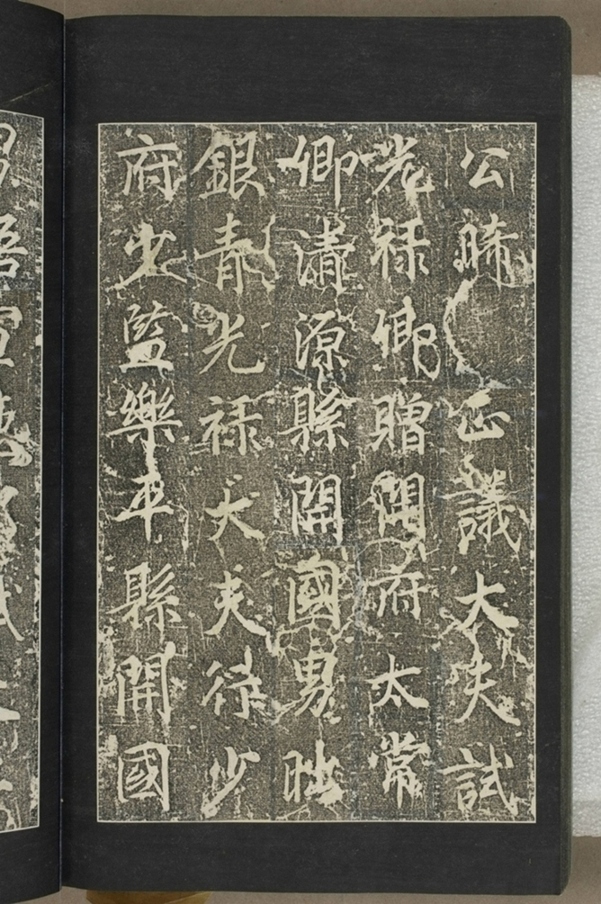 公晞正議大夫試
光禄卿贈開府太常
卿清源縣開國男昢
銀青光禄大夫行少
府少監樂平縣開國